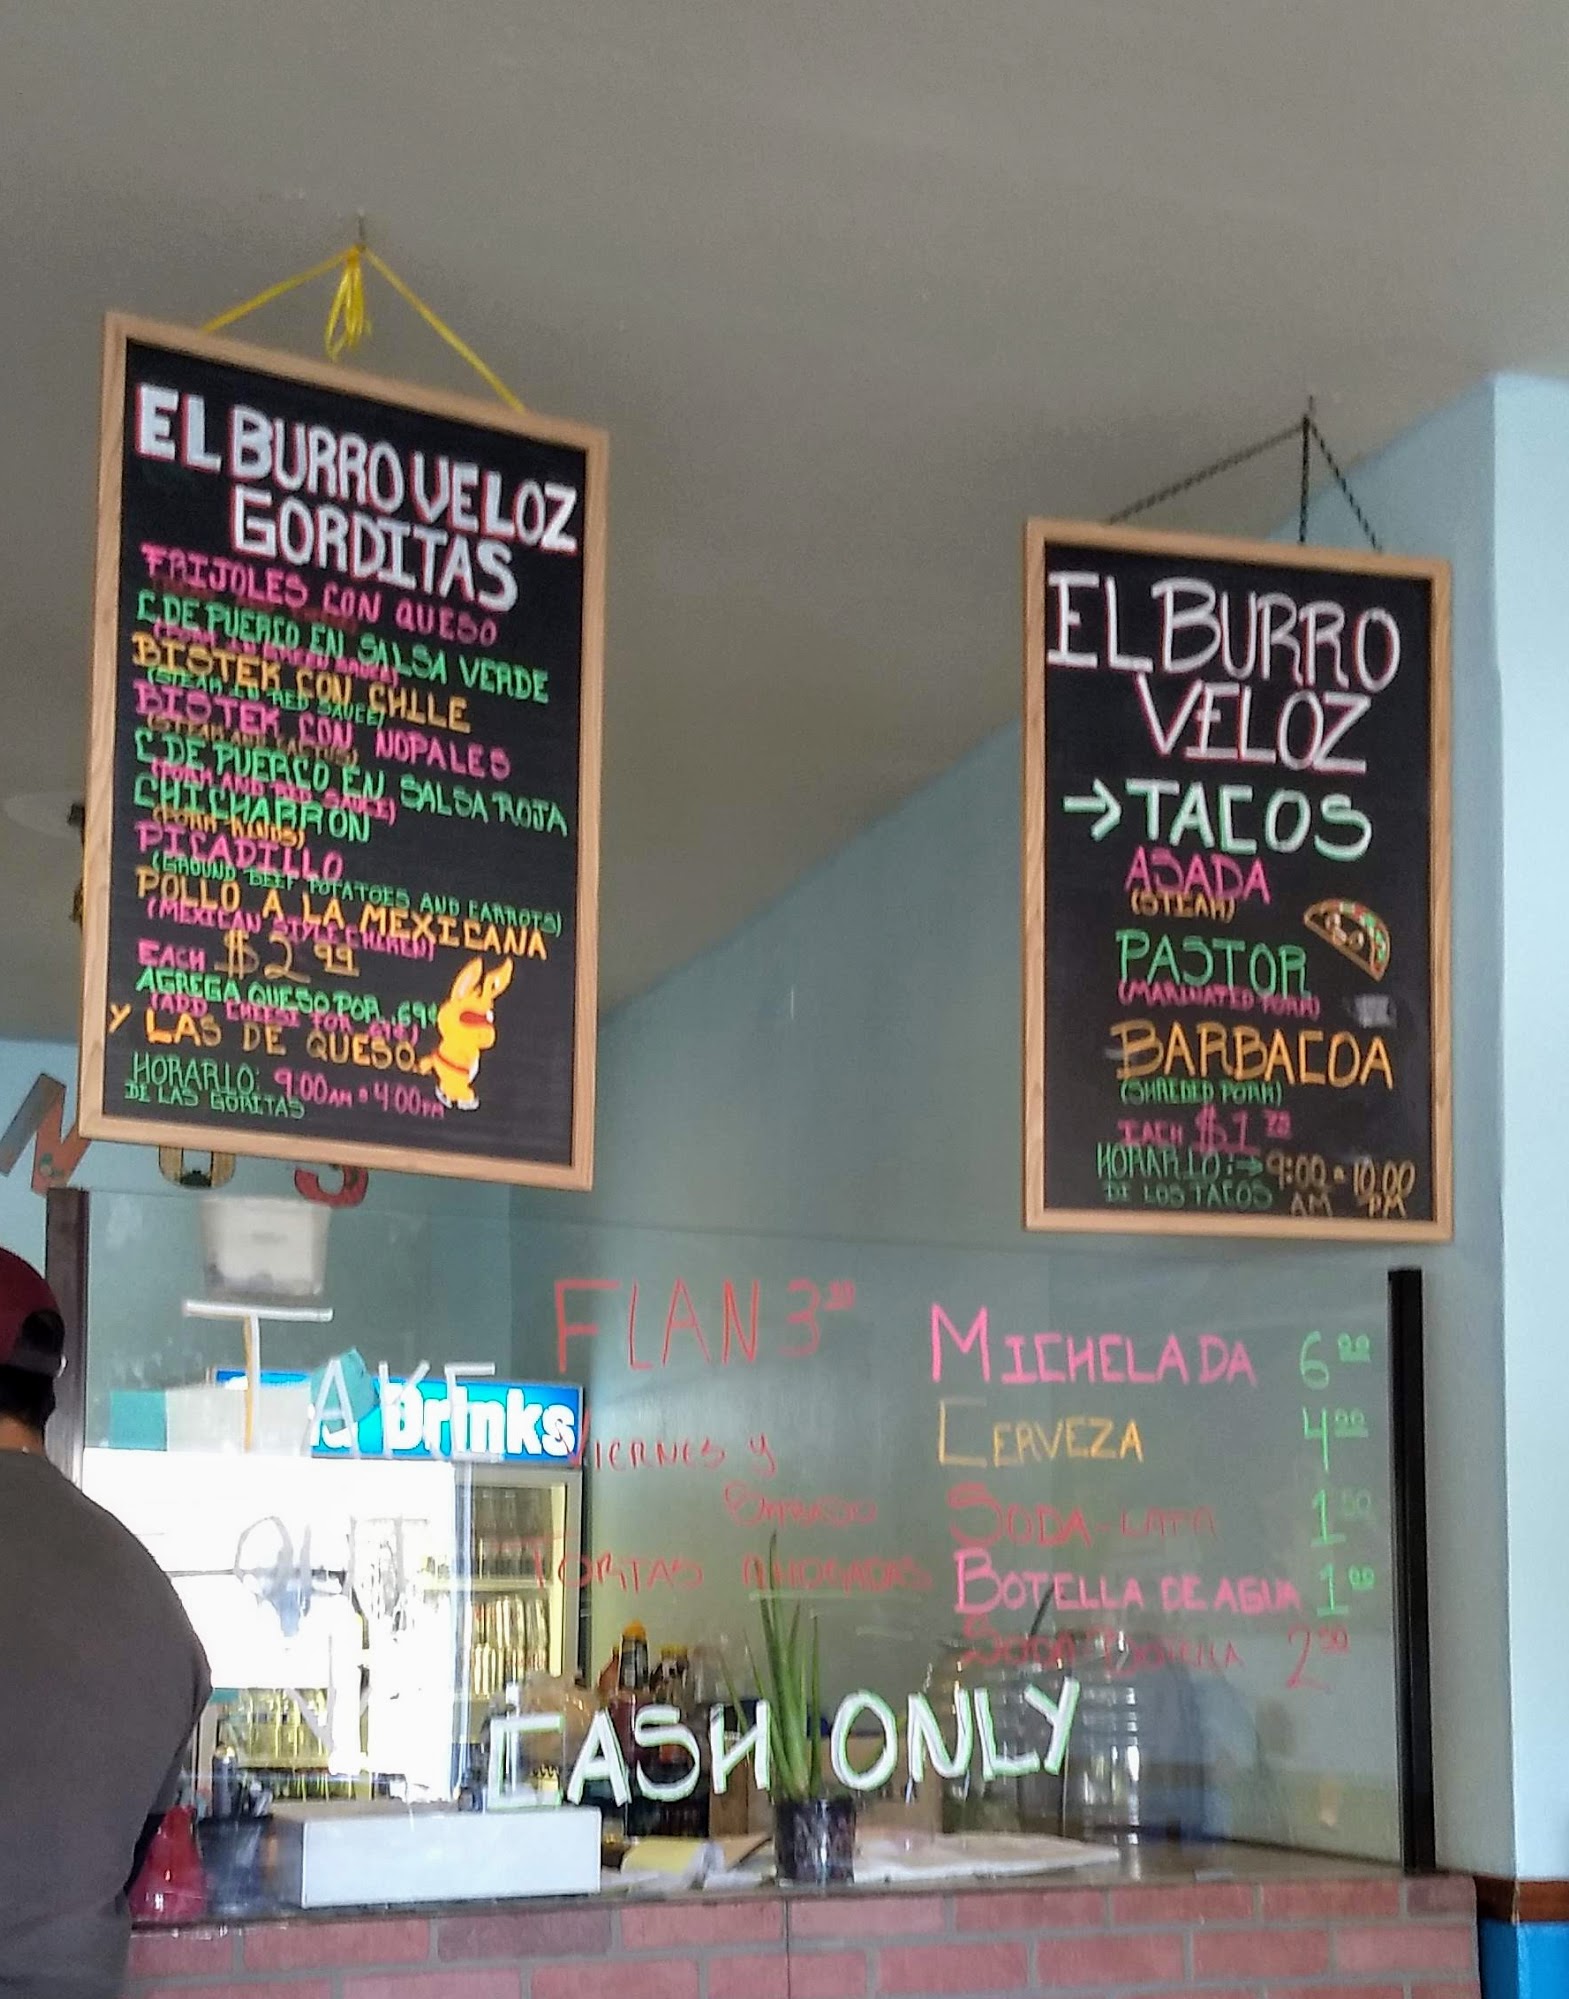 EL BURRO VELOZ
GORDITAS
FRIJOLES CON QUESO
C.DE PUERCO EN SALSA VERDE
(PORK IN GREEN SAUCE)
BISTEK CON CHILE
(STEAK IN RED SAUCE)
BISTEK CON NOPALES
(STEAK AND CACTUS)
C.DE PUERCO EN SALSA ROJA
(PORK AND RED SAUCE)
CHICHARRON
(PORK RINDS)
PICADILLO
(GROUND BEEF POTATOES AND CARROTS)
POLLO A LA MEXICANA
(MEXICAN STYLE CHICKEN)
EACH $2.99
AGREGA QUESO POR .69¢
(ADD CHEESE FOR .69¢)
Y LAS DE QUESO.
HORARIO: 9:00AM a 4:00PM
DE LAS GORITAS
EL BURRO
VELOZ
→TACOS
ASADA
(STEAK)
PASTOR
(MARINATED PORK)
BARBACOA
(SHREDED PORK)
EACH $1.75
HORARIO:→ 9:00 a 10:00
DE LOS TACOS AM PM
TAKE
OUT
Drinks
FLAN 3
VIERNES Y
SABADO
TORTAS AHOGADAS
MICHELADA 6.00
CERVEZA 4.00
SODA-LATA 1.50
BOTELLA DE AGUA 1.00
SODA BOTELLA 2.50
CASH ONLY